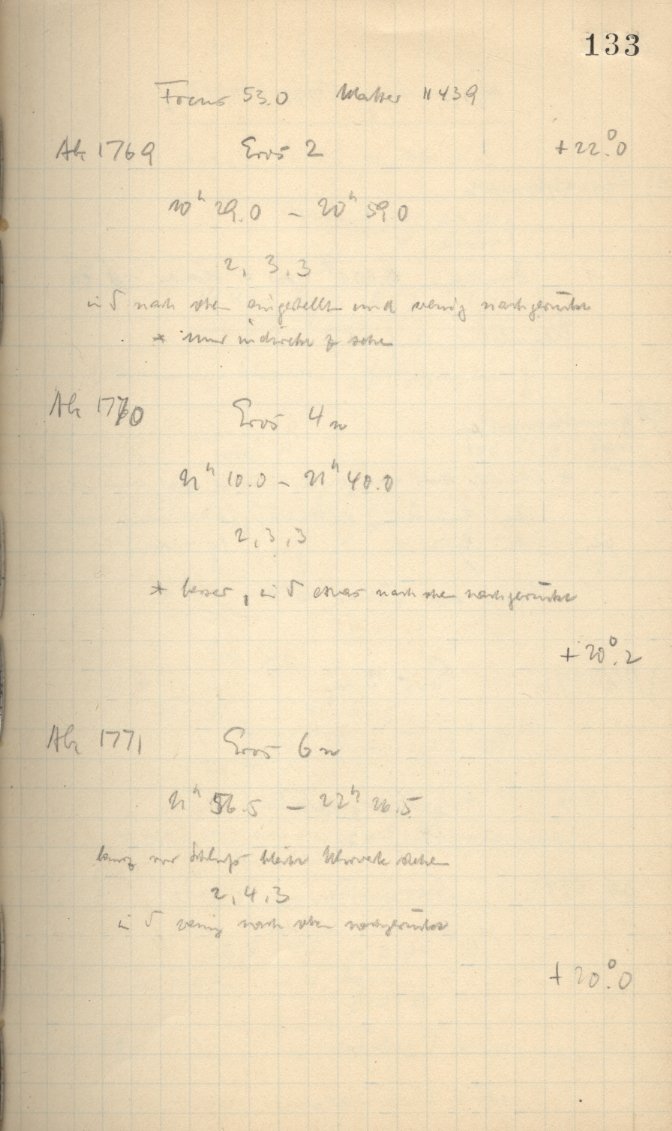 133
Focus 53.0 11439
AG 1769 Eros 2 +22.°0
20ʰ 29.0 – 20ʰ 59.0
2, 3, 3
in δ nach oben eingestellt und wenig nachgerückt
* nur indirekt z sehen
AG 1770 Eros 4
21ʰ 10.0 – 21ʰ 40.0
2, 3, 3
* besser, in δ etwas nach oben nachgerückt
+20.°2
AG 1771 Eros 6
21ʰ 56.5 – 22ʰ 26.5
kurz vor Schluß bleibt Uhrwerk stehen
2, 4, 3
in δ wenig nach oben nachgerückt
+20.°0